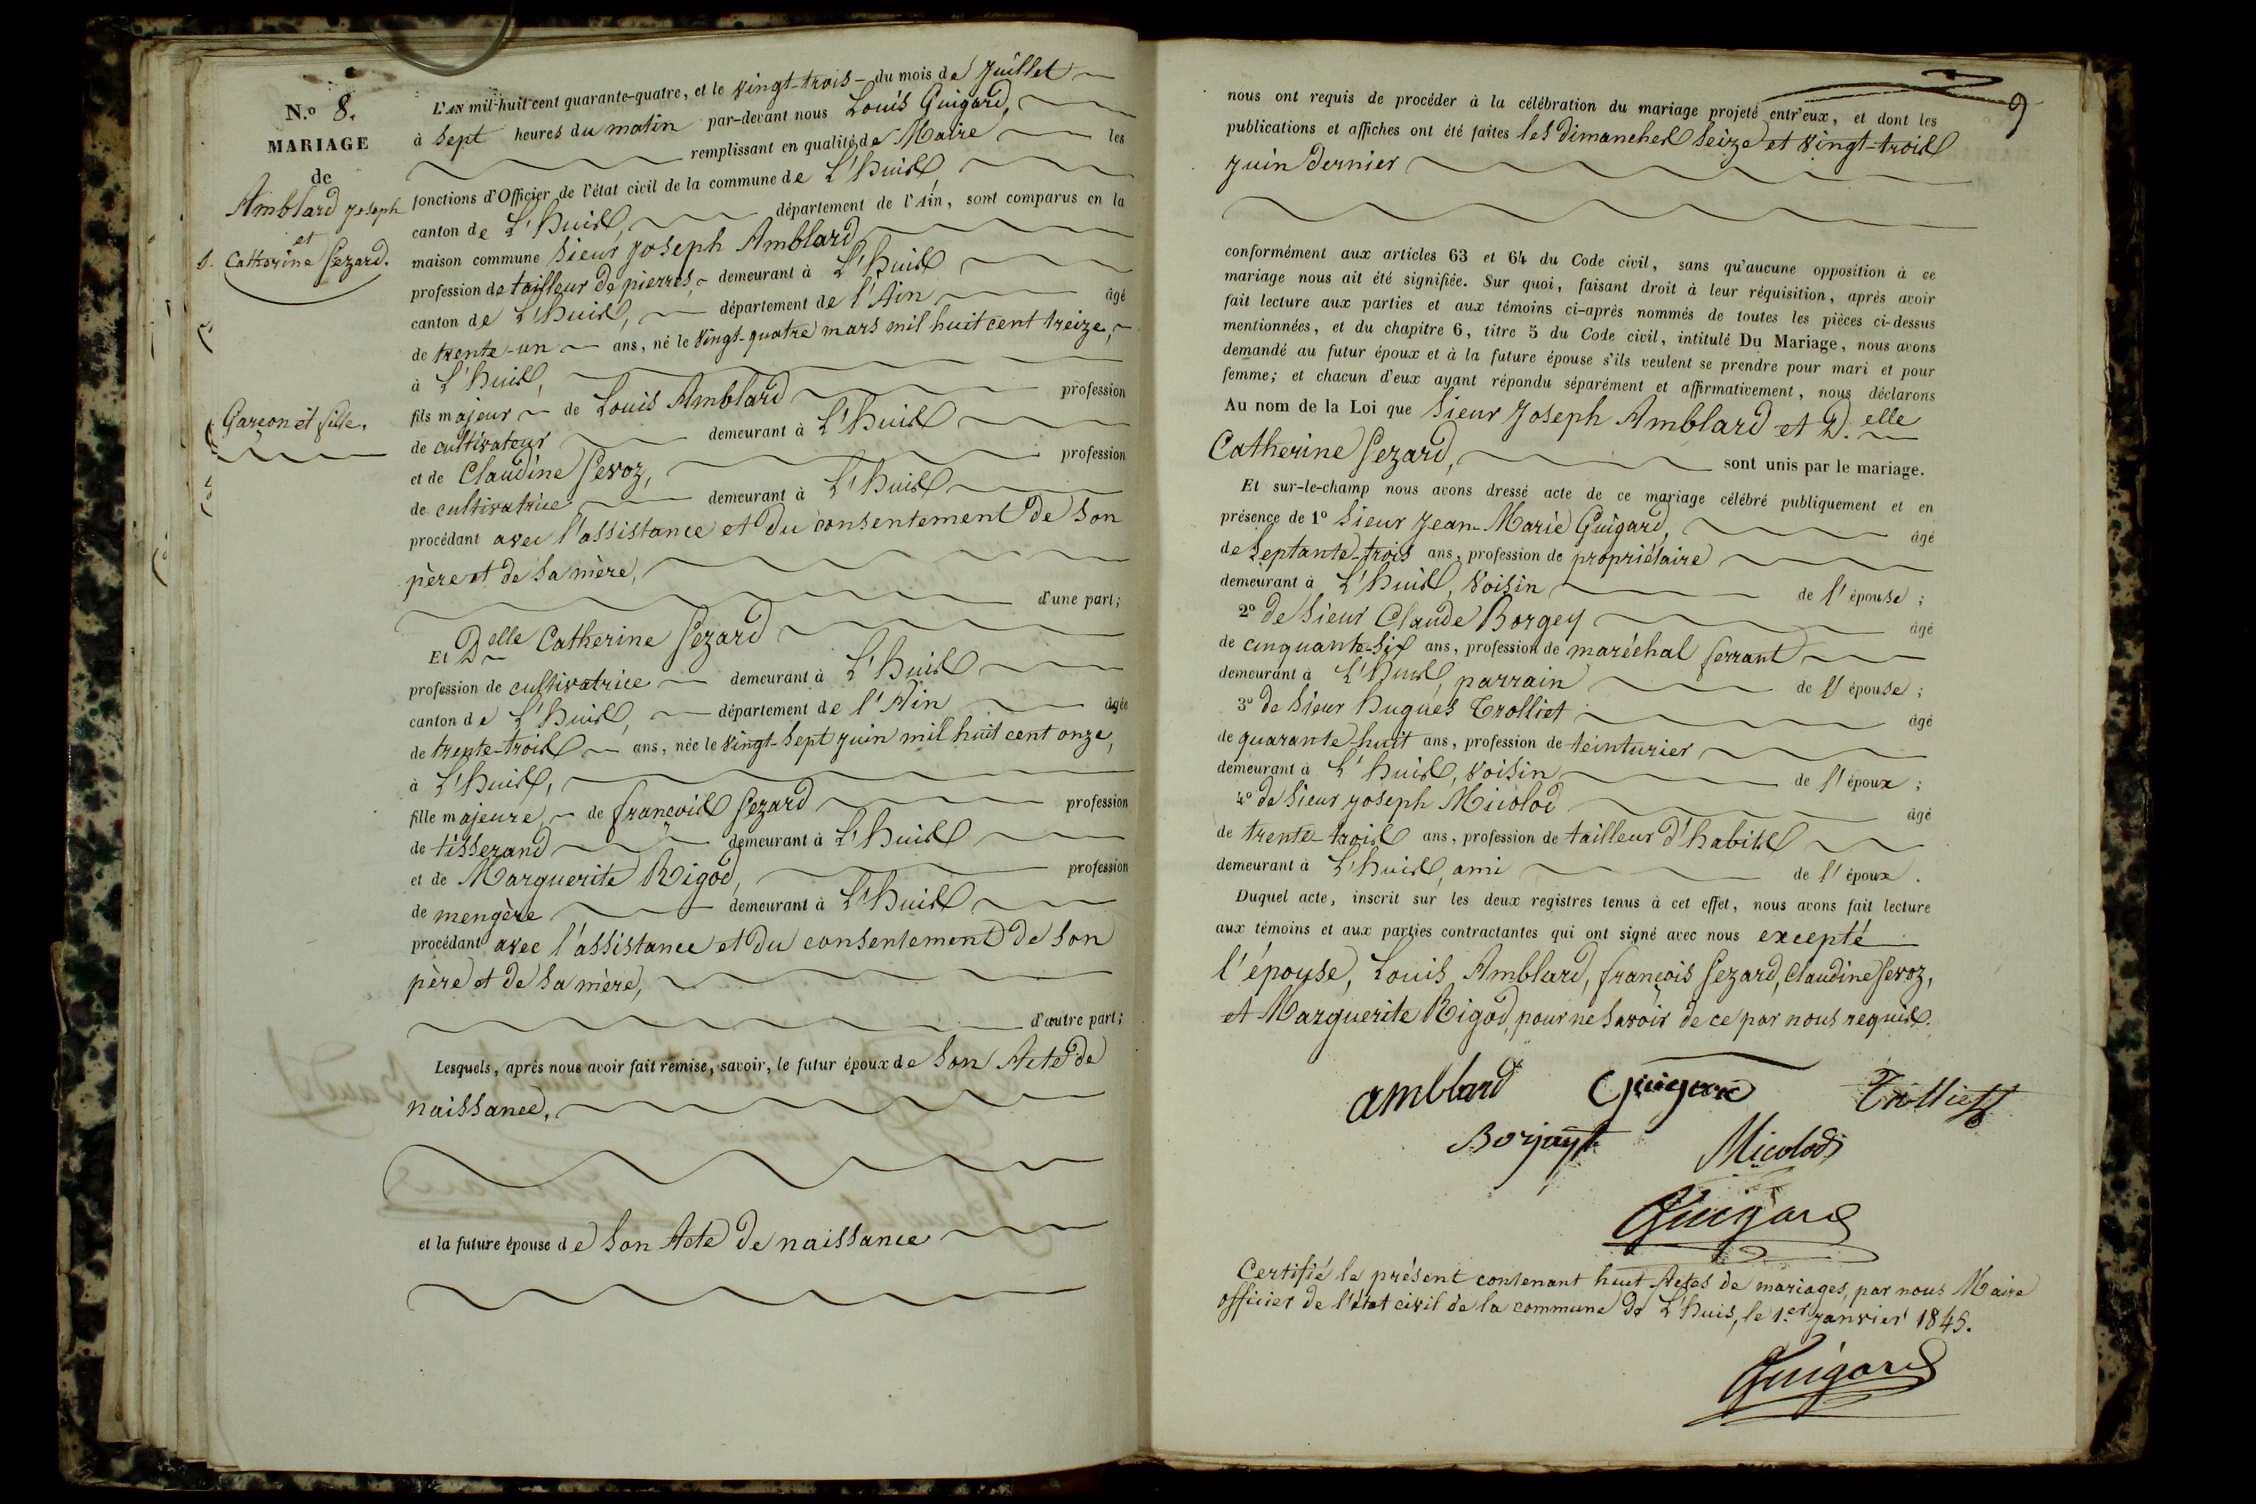 N.º 8.
MARIAGE
de
Amblard Joseph
et
Catherine Pezard.
Garçon et fille.
L'AN mil-huit cent quarante-quatre, et le vingt-trois du mois de Juillet
à sept heures du matin par-devant nous Louis Guigard,
remplissant en qualité de Maire les
fonctions d'Officier de l'état civil de la commune de L'huis
canton de L'huis, département de l'Ain, sont comparus en la
maison commune Sieur Joseph Amblard
profession de tailleur de pierres, demeurant à L'huis
canton de L'huis, département de l'Ain âgé
de trente-un ans, né le vingt-quatre mars mil huit cent treize,
à L'huis,
fils majeur de Louis Amblard profession
de cultivateur demeurant à L'huis
et de Claudine Pevoz, profession
de cultivatrice demeurant à L'huis
procédant avec l'assistance et du consentement de son
père et de sa mère,
d'une part;
Et Delle Catherine Pezard
profession de cultivatrice demeurant à L'huis
canton de L'huis, département de l'Ain âgée
de trente-trois ans, née le vingt-sept juin mil huit cent onze,
à L'huis,
fille majeure, de françois Pezard profession
de tisserand demeurant à L'huis
et de Marguerite Rigod, profession
de mengère demeurant à L'huis
procédant avec l'assistance et du consentement de son
père et de sa mère,
d'autre part;
Lesquels, après nous avoir fait remise, savoir, le futur époux de son Acte de
naissance,
et la future épouse de son Acte de naissance
9
nous ont requis de procéder à la célébration du mariage projeté entr'eux, et dont les
publications et affiches ont été faites les dimanches seize et vingt-trois
juin dernier
conformément aux articles 63 et 64 du Code civil, sans qu'aucune opposition à ce
mariage nous ait été signifiée. Sur quoi, faisant droit à leur réquisition, après avoir
fait lecture aux parties et aux témoins ci-après nommés de toutes les pièces ci-dessus
mentionnées, et du chapitre 6, titre 5 du Code civil, intitulé Du Mariage, nous avons
demandé au futur époux et à la future épouse s'ils veulent se prendre pour mari et pour
femme; et chacun d'eux ayant répondu séparément et affirmativement, nous déclarons
Au nom de la Loi que Sieur Joseph Amblard et D.elle
Catherine Pezard, sont unis par le mariage.
Et sur-le-champ nous avons dressé acte de ce mariage célébré publiquement et en
présence de 1º Sieur Jean-Marie Guigard, âgé
de Septante-trois ans, profession de propriétaire
demeurant à L'huis, voisin de l'épouse;
2º de Sieur Claude Borgey âgé
de cinquante-six ans, profession de maréchal ferrant
demeurant à L'huis, parrain de l'épouse;
3º de Sieur hugues Trolliet âgé
de quarante-huit ans, profession de teinturier
demeurant à L'huis, voisin de l'époux;
4º de Sieur Joseph Micolod âgé
de trente-trois ans, profession de tailleur d'habits
demeurant à L'huis, ami de l'époux.
Duquel acte, inscrit sur les deux registres tenus à cet effet, nous avons fait lecture
aux témoins et aux parties contractantes qui ont signé avec nous excepté
l'épouse, Louis Amblard, françois Pezard, Claudine Pevoz,
et Marguerite Rigod, pour ne savoir de ce par nous requis.
amblard Guigard Trolliet
Borjayt Micolod
Guigard
Certifié le présent contenant huit Actes de mariages, par nous Maire
officier de l'état civil de la commune de L'huis, le 1.er Janvier 1845.
Guigard